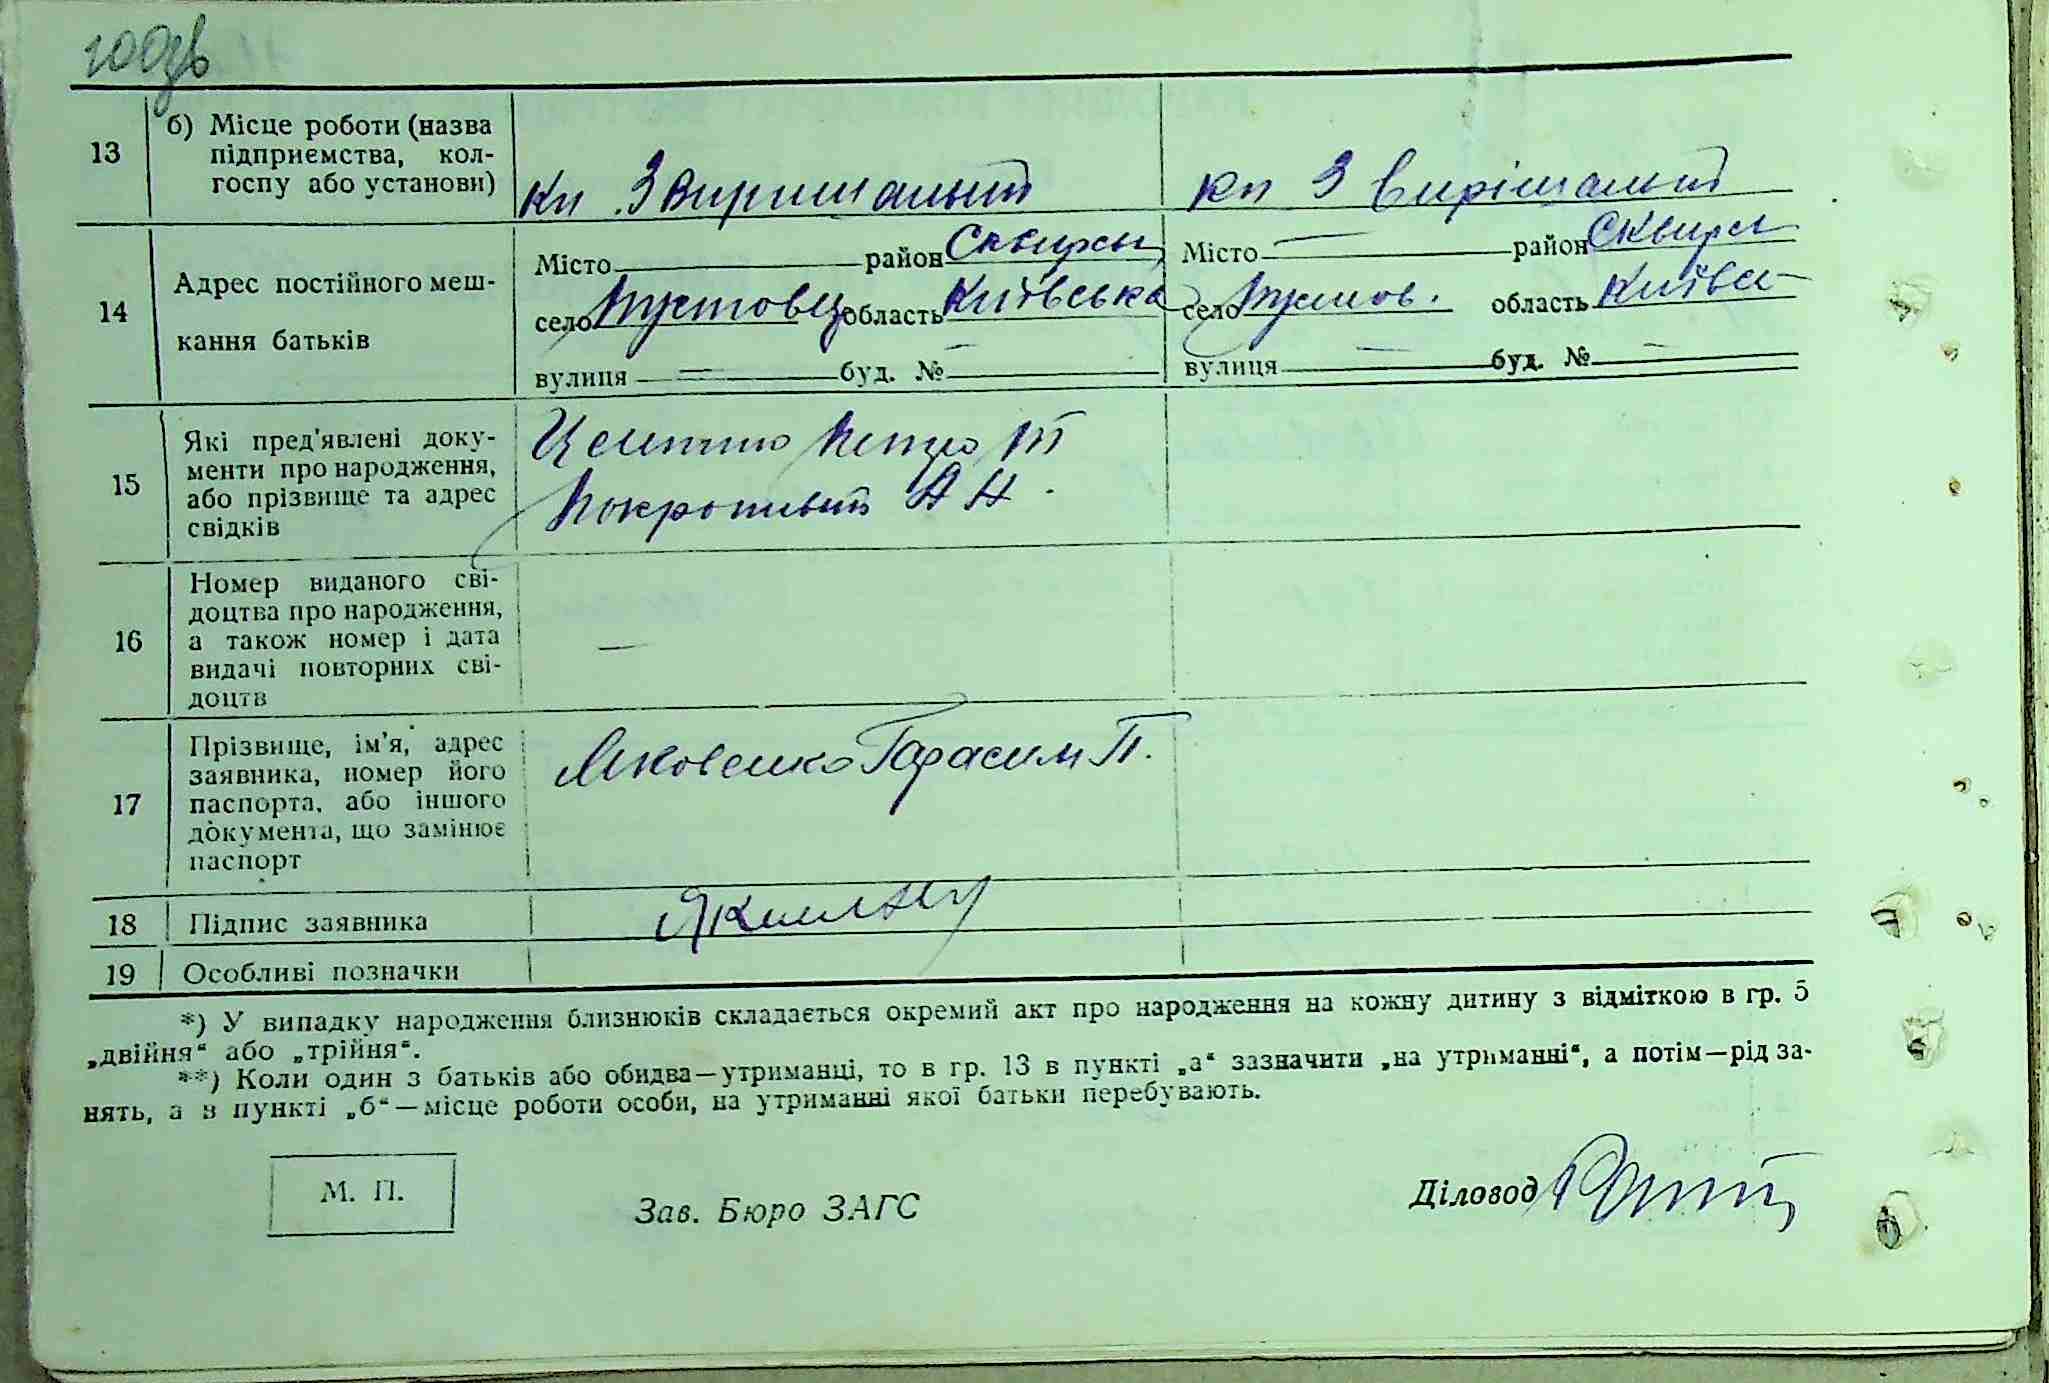 100зв
13 б) Місце роботи (назва
підприємства, кол-
госпу або установи)
Кп 3 виришальний кп 3 вирішальний
14 Адрес постійного меш-
кання батьків
Місто — район Сквирськ Місто — район Сквирс
село Пустовец область Київська село Пустов. область Київсь
вулиця — буд. № — вулиця — буд. № —
15 Які пред'явлені доку-
менти про народження,
або прізвище та адрес
свідків
Петро
А Н.
16 Номер виданого сві-
доцтва про народження,
а також номер і дата
видачі повторних сві-
доцтв
—
17 Прізвище, ім'я, адрес
заявника, номер його
паспорта, або іншого
документа, що замінює
паспорт
Яковенко Гарасим П.
18 Підпис заявника
19 Особливі позначки
*) У випадку народження близнюків складається окремий акт про народження на кожну дитину з відміткою в гр. 5
„двійня“ або „трійня“.
**) Коли один з батьків або обидва—утриманці, то в гр. 13 в пункті „а“ зазначити „на утриманні“, а потім—рід за-
нять, а в пункті „б“—місце роботи особи, на утриманні якої батьки перебувають.
М. П.
Зав. Бюро ЗАГС
Діловод